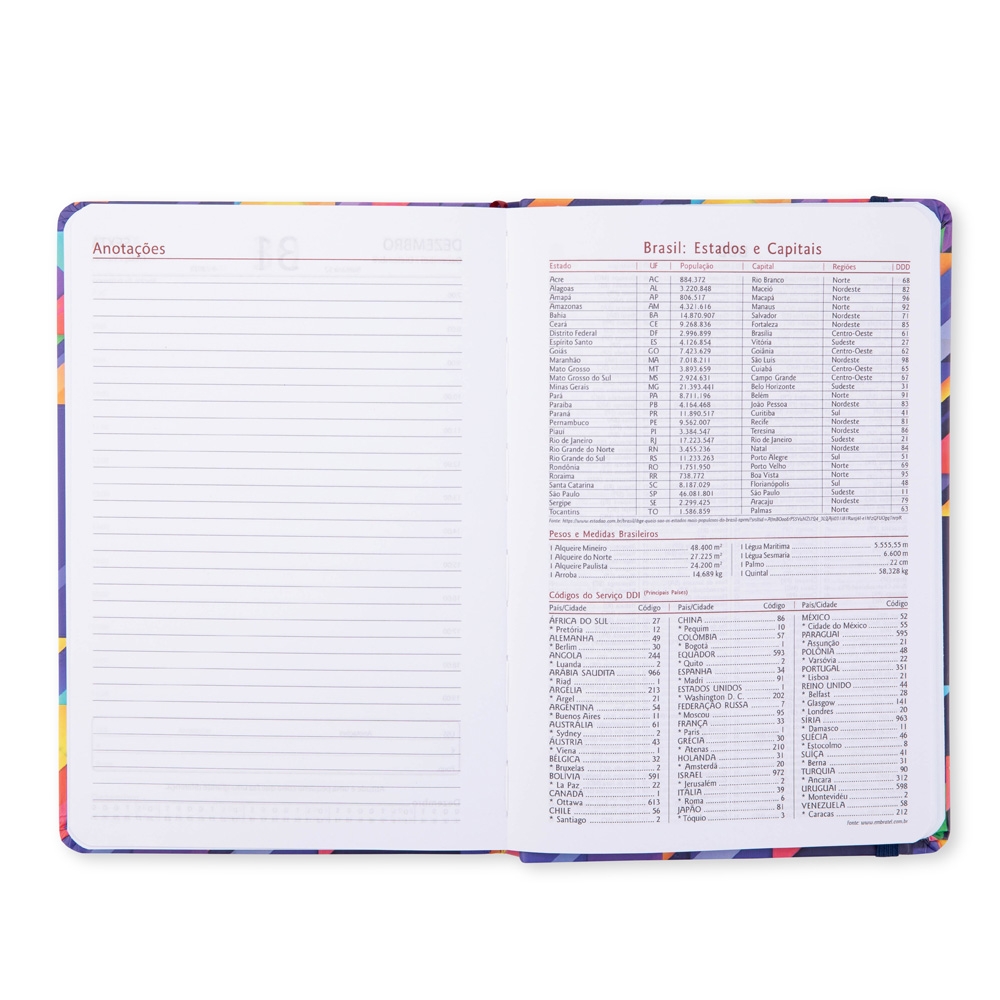 Anotações
Brasil: Estados e Capitais
Estado UF População Capital Regiões DDD
Acre AC 884.372 Rio Branco Norte 68
Alagoas AL 3.220.848 Maceió Nordeste 82
Amapá AP 806.517 Macapá Norte 96
Amazonas AM 4.321.616 Manaus Norte 92
Bahia BA 14.870.907 Salvador Nordeste 71
Ceará CE 9.268.836 Fortaleza Nordeste 85
Distrito Federal DF 2.996.899 Brasília Centro-Oeste 61
Espírito Santo ES 4.126.854 Vitória Sudeste 27
Goiás GO 7.423.629 Goiânia Centro-Oeste 62
Maranhão MA 7.018.211 São Luis Nordeste 98
Mato Grosso MT 3.893.659 Cuiabá Centro-Oeste 65
Mato Grosso do Sul MS 2.924.631 Campo Grande Centro-Oeste 67
Minas Gerais MG 21.393.441 Belo Horizonte Sudeste 31
Pará PA 8.711.196 Belém Norte 91
Paraíba PB 4.164.468 João Pessoa Nordeste 83
Paraná PR 11.890.517 Curitiba Sul 41
Pernambuco PE 9.562.007 Recife Nordeste 81
Piauí PI 3.384.547 Teresina Nordeste 86
Rio de Janeiro RJ 17.223.547 Rio de Janeiro Sudeste 21
Rio Grande do Norte RN 3.455.236 Natal Nordeste 84
Rio Grande do Sul RS 11.233.263 Porto Alegre Sul 51
Rondônia RO 1.751.950 Porto Velho Norte 69
Roraima RR 738.772 Boa Vista Norte 95
Santa Catarina SC 8.187.029 Florianópolis Sul 48
São Paulo SP 46.081.801 São Paulo Sudeste 11
Sergipe SE 2.299.425 Aracaju Nordeste 79
Tocantins TO 1.586.859 Palmas Norte 63
Pesos e Medidas Brasileiros
1 Alqueire Mineiro 48.400 m² 1 Légua Marítima 5.555,55 m
1 Alqueire do Norte 27.225 m² 1 Légua Sesmaria 6.600 m
1 Alqueire Paulista 24.200 m² 1 Palmo 22 cm
1 Arroba 14.689 kg 1 Quintal 58,328 kg
Códigos do Serviço DDI (Principais Países)
País/Cidade Código País/Cidade Código País/Cidade Código
ÁFRICA DO SUL 27
* Pretória 12
ALEMANHA 49
* Berlim 30
ANGOLA 244
* Luanda 2
ARÁBIA SAUDITA 966
* Riad 1
ARGÉLIA 213
* Argel 21
ARGENTINA 54
* Buenos Aires 11
AUSTRÁLIA 61
* Sydney 2
ÁUSTRIA 43
* Viena 1
BÉLGICA 32
* Bruxelas 2
BOLÍVIA 591
* La Paz 22
CANADÁ 1
* Ottawa 613
CHILE 56
* Santiago 2
CHINA 86
* Pequim 10
COLÔMBIA 57
* Bogotá 1
EQUADOR 593
* Quito 2
ESPANHA 34
* Madri 91
ESTADOS UNIDOS 1
* Washington D. C. 202
FEDERAÇÃO RUSSA 7
* Moscou 95
FRANÇA 33
* Paris 1
GRÉCIA 30
* Atenas 210
HOLANDA 31
* Amsterdã 20
ISRAEL 972
* Jerusalém 2
ITÁLIA 39
* Roma 6
JAPÃO 81
* Tóquio 3
MÉXICO 52
* Cidade do México 55
PARAGUAI 595
* Assunção 21
POLÔNIA 48
* Varsóvia 22
PORTUGAL 351
* Lisboa 21
REINO UNIDO 44
* Belfast 28
* Glasgow 141
* Londres 20
SÍRIA 963
* Damasco 11
SUÉCIA 46
* Estocolmo 8
SUÍÇA 41
* Berna 31
TURQUIA 90
* Ancara 312
URUGUAI 598
* Montevidéu 2
VENEZUELA 58
* Caracas 212
Fonte: www.embrasil.com.br